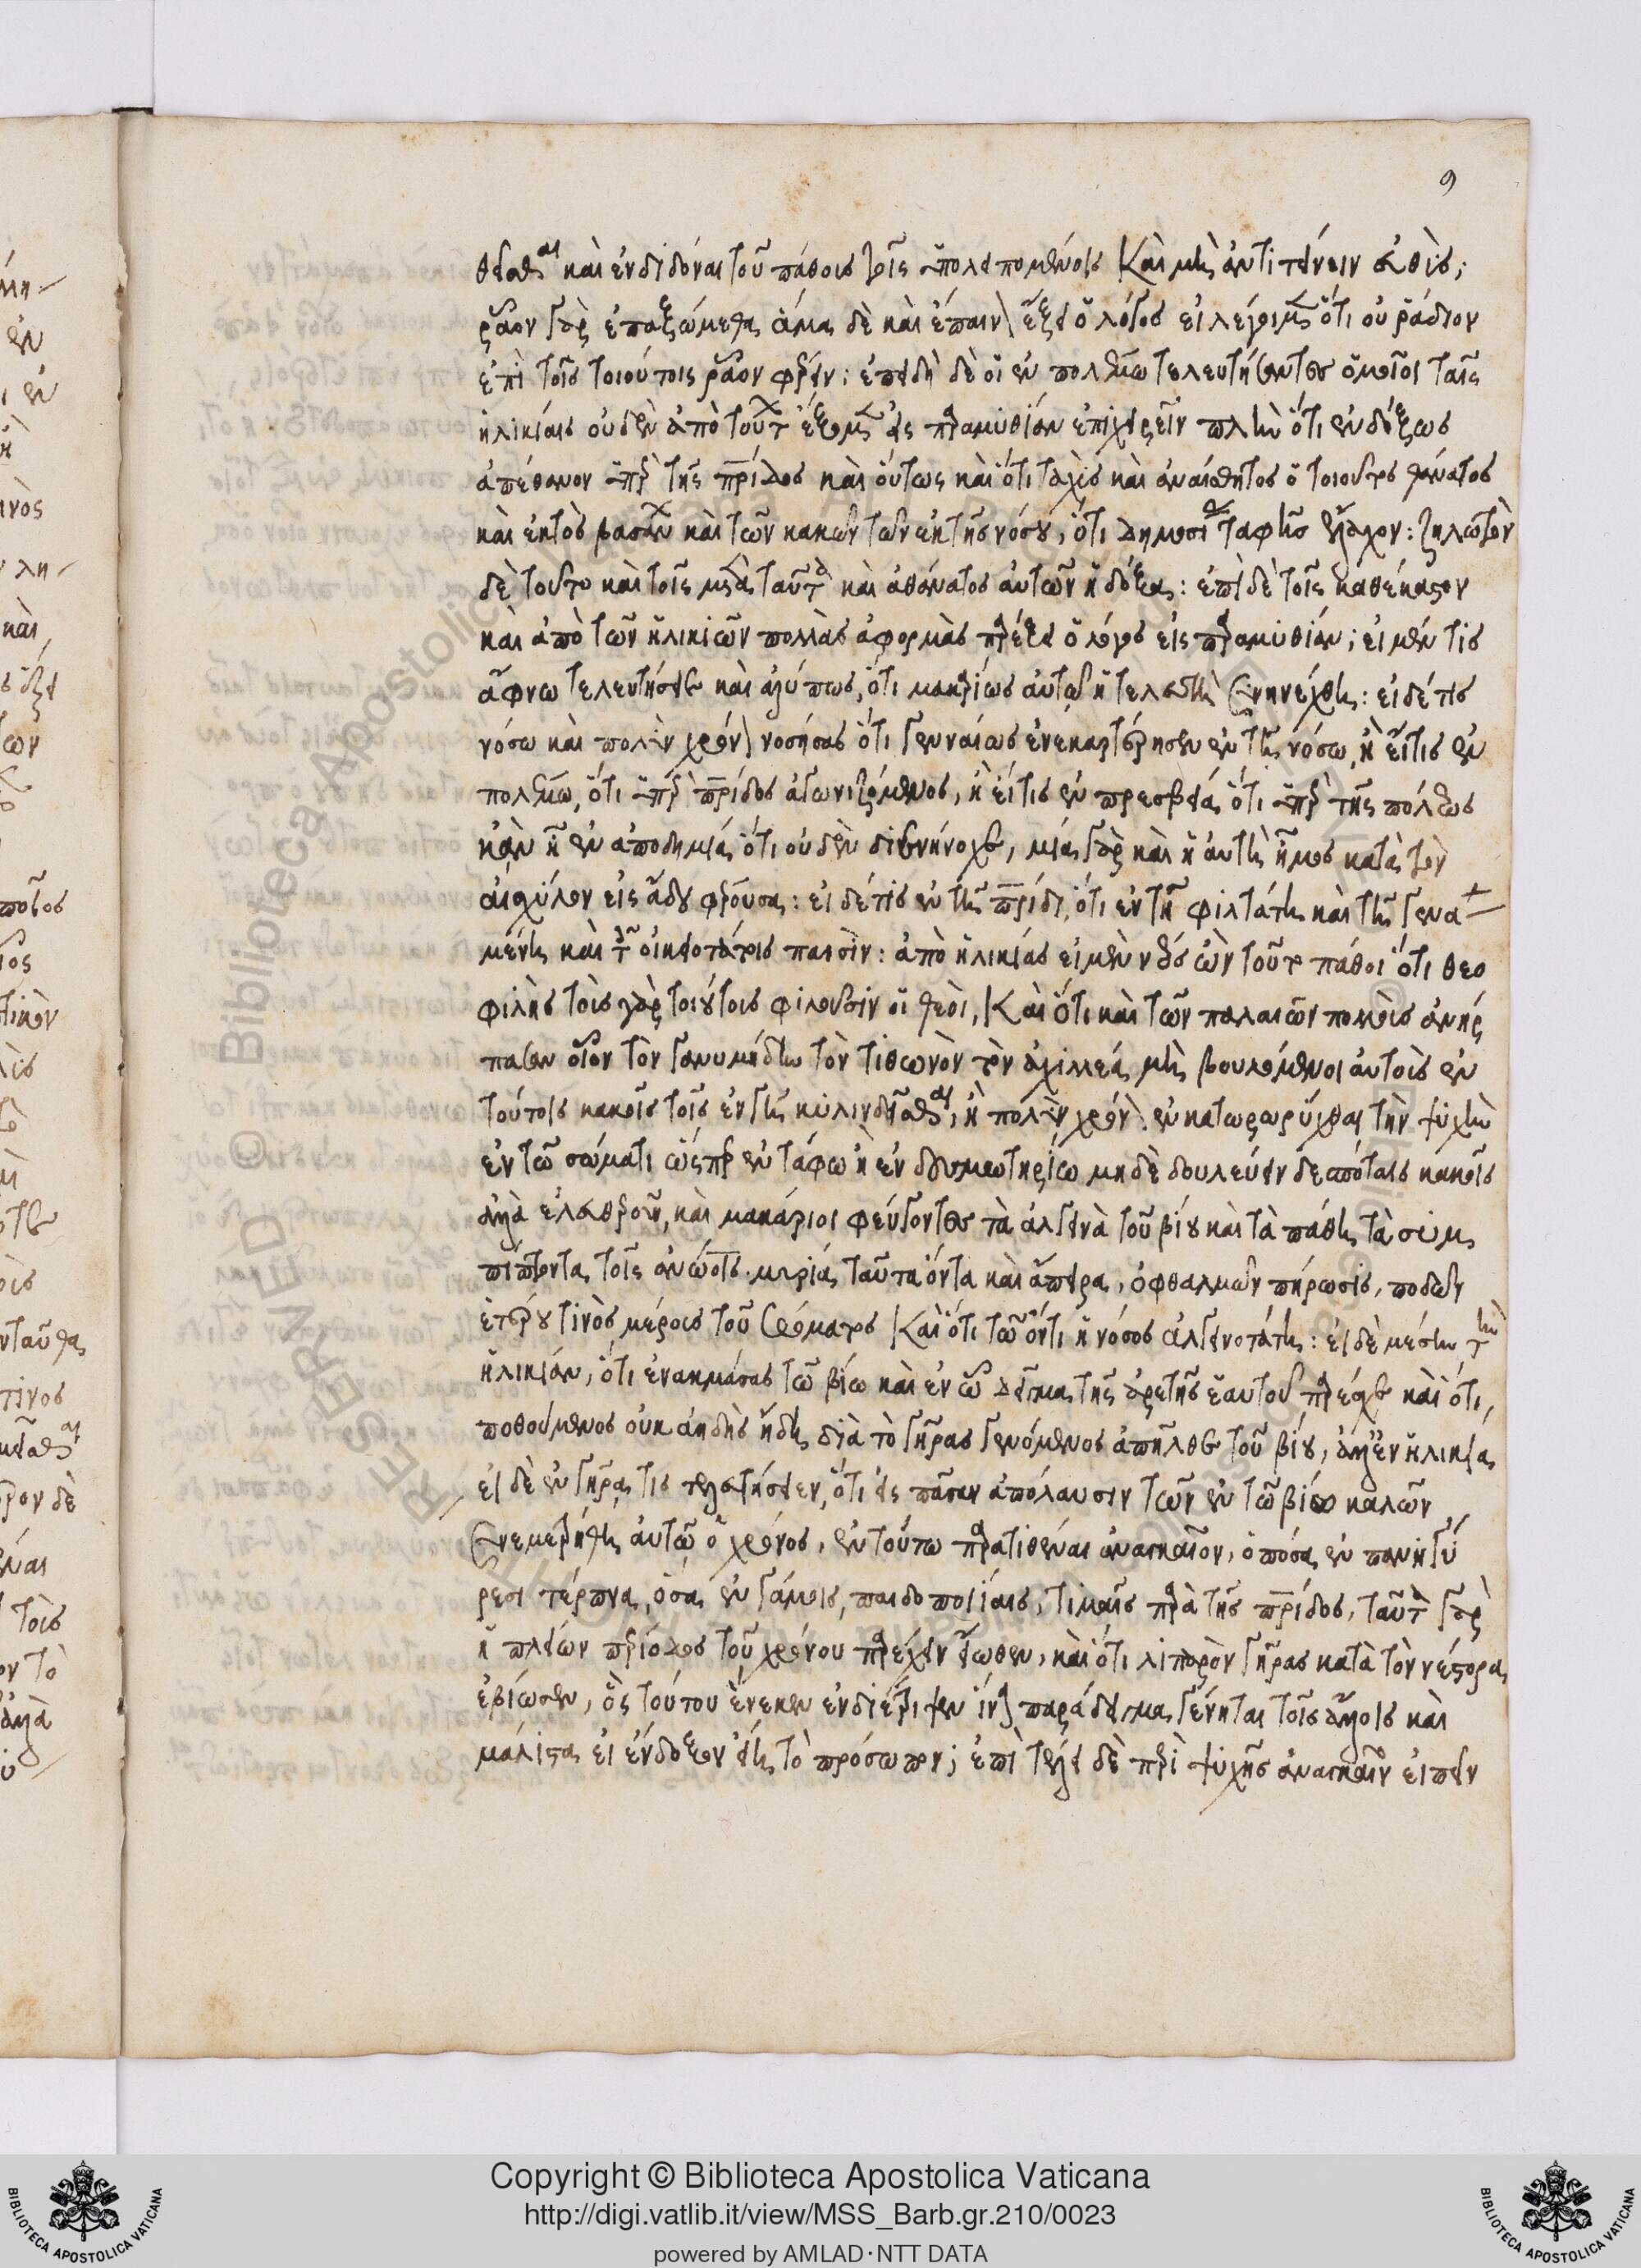 9
θεῖσθαι καὶ ἐνδιδόναι τοῦ πάθους τοῖς ὑπολειπομένοις καὶ μὴ ἀντιτείνειν εὐθὺς·
ῥᾷον γὰρ ἐπαξώμεθα ἅμα δὲ καὶ ἔπαινον ἕξει ὁ λόγος εἰ λέγοιμεν ὅτι οὐ ῥάδιον
ἐπὶ τοῖς τοιούτοις ῥᾷον φέρειν: ἐπειδὴ δὲ οἱ ἐν πολέμω τελευτήσαντες ὅμοιοι ταῖς
ἡλικίαις οὐδὲν ἀπὸ τούτων ἕξομεν εἰς παραμυθίαν ἐπιχειρεῖν πλὴν ὅτι ἐνδόξως
ἀπέθανον ὑπὲρ τῆς πρίδος καὶ οὕτως καὶ ὅτι ταχὺς καὶ ἀναίσθητος ὁ τοιοῦτος θάνατος
καὶ ἐκτὸς βασάνων καὶ τῶν κακῶν τῶν ἐκ τῆς νόσου, ὅτι δημοσίας ταφῆς ἔλαχον: ζηλωτὸν
δὲ τοῦτο καὶ τοῖς μετὰ ταῦτα καὶ ἀθάνατος αὐτῶν ἡ δόξα: ἐπὶ δὲ τοῖς καθέκαστον
καὶ ἀπὸ τῶν ἡλικιῶν πολλὰς ἀφορμὰς παρέξει ὁ λόγος εἰς παραμυθίαν; εἰ μέν τις
ἄφνω τελευτήσειε καὶ ἀλύπως, ὅτι μακαρίως αὐτῶ ἡ τελευτὴ συνηνέχθη: εἰ δέ τις
νόσω καὶ πολὺν χρόνον νοσήσας ὅτι γενναίως ἐνεκαρτέρησεν ἐν τῇ νόσω, κὰ εἴτις ἐν
πολέμω, ὅτι ὑπὲρ πρίδος ἀγωνιζόμενος, κὰ εἴτις ἐν πρεσβεία ὅτι ὑπὲρ τῆς πόλεως
κἂν ᾖ ἐν ἀποδημία ὅτι οὐδὲν διενήνοχε, μία γὰρ καὶ ἡ αὐτὴ οἶμος κατὰ τὸν
αἰσχύλον εἰς ἅδου φέρουσα: εἰ δέ τις ἐν τῇ πρίδι, ὅτι ἐν τῇ φιλτάτη καὶ τῇ γεινα
μένη καὶ τοῖς οἰκειοτάτοις πᾶσιν: ἀπὸ ἡλικίας εἰ μὲν νέος ὢν τοῦτο πάθοι ὅτι θεο
φιλὴς τοὺς γὰρ τοιούτους φιλοῦσιν οἱ θεοὶ, καὶ ὅτι καὶ τῶν παλαιῶν πολλοὺς ἀνήρ
πασαν οἷον τὸν γανυμήδην τὸν τιθωνὸν τὸν ἀχιλλέα, μὴ βουλόμενοι αὐτοὺς ἐν
τούτοις κακοῖς τοῖς ἐν γῇ κυλινδεῖσθαι, κὰ πολὺν χρόνον ἐγκατωρωρύχθαι τὴν ψυχὴν
ἐν τῶ σώματι ὥσπερ ἐν τάφω ἢ ἐν δεσμωτηρίω μηδὲ δουλεύειν δεσπόταις κακοῖς
ἀλλὰ ἐλευθεροῦν, καὶ μακάριοι φεύγοντες τὰ ἀλγεινὰ τοῦ βίου καὶ τὰ πάθη τὰ συμ
πίπτοντα τοῖς ἀνώοις. μυρία ταῦτα ὄντα καὶ ἄπειρα, ὀφθαλμῶν πήρωσις, ποδῶν
ἑτέρου τινὸς μέρους τοῦ σώματος καὶ ὅτι τῶ ὄντι ἡ νόσος ἀλγεινοτάτη: εἰ δὲ μέσην τὴν
ἡλικίαν, ὅτι ἐνακμάσας τῶ βίω καὶ ἐν ὧ δεῖγμα τῆς ἀρετῆς ἑαυτοῦ παρέσχε καὶ ὅτι
ποθούμενος οὐκ ἀηδὴς ἤδη διὰ τὸ γῆρας γενόμενος ἀπῆλθε τοῦ βίου, ἀλλ' ἐν ἡλικία
εἰ δὲ ἐν γήρα τις τελευτήσειεν, ὅτι εἰς πᾶσαν ἀπόλαυσιν τῶν ἐν τῶ βίω καλῶν
συνεμετρήθη αὐτῶ ὁ χρόνος, ἐν τούτω παρατιθέναι ἀναγκαῖον, ὁπόσα ἐν πανηγύ
ρεσι τέρπνα, ὅσα ἐν γάμοις, παιδοποιίαις, τιμαῖς παρὰ τῆς πρίδος, ταῦτα γὰρ
ἡ πλείων περίοδος τοῦ χρόνου παρέχειν εἴωθεν, καὶ ὅτι λιπαρὸν γῆρας κατὰ τὸν νέστορα
ἐβίωσεν, ὃς τούτου ἕνεκεν ἐνδιέτριψεν ἵνα παράδειγμα γένηται τοῖς ἄλλοις καὶ
μάλιστα εἰ ἔνδοξον εἴη τὸ πρόσωπον; ἐπὶ τέλει δὲ περὶ ψυχῆς ἀναγκαῖον εἰπεῖν
Copyright © Biblioteca Apostolica Vaticana
http://digi.vatlib.it/view/MSS_Barb.gr.210/0023
powered by AMLAD·NTT DATA
BIBLIOTECA APOSTOLICA VATICANA
BIBLIOTECA APOSTOLICA VATICANA